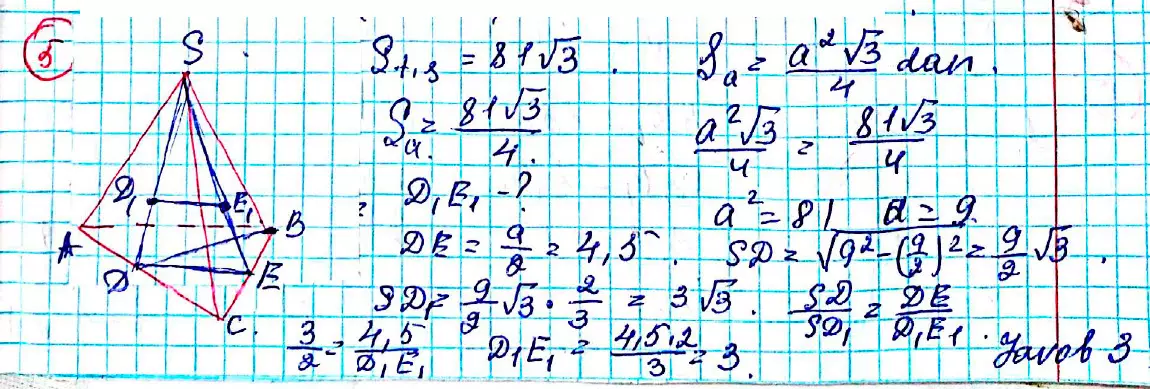 5
S
S_{t.s} = 81√3 . S_a = a²√3/4 dan.
S_a = 81√3/4. a²√3/4 = 81√3/4
D₁E₁ - ? a² = 81 a = 9
DE = 9/2 = 4,5 SD = √(9² - (9/2)²) = 9/2 √3 .
SD₁ = 9/2 √3 · 2/3 = 3√3 . SD/SD₁ = DE/D₁E₁ .
3/2 = 4,5/D₁E₁ D₁E₁ = 4,5·2/3 = 3. Javob 3
D₁ E₁
A B
D E
C.